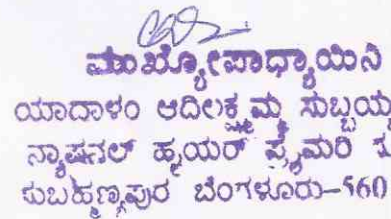 ಮುಖ್ಯೋಪಾಧ್ಯಾಯಿನಿ
ಯಾದಾಳಂ ಆದಿಲಕ್ಷ್ಮಮ್ಮ ಸುಬ್ಬಯ
ನ್ಯಾಷನಲ್ ಹೈಯರ್ ಪ್ರೈಮರಿ
ಸುಬ್ರಹ್ಮಣ್ಯಪುರ ಬೆಂಗಳೂರು-560